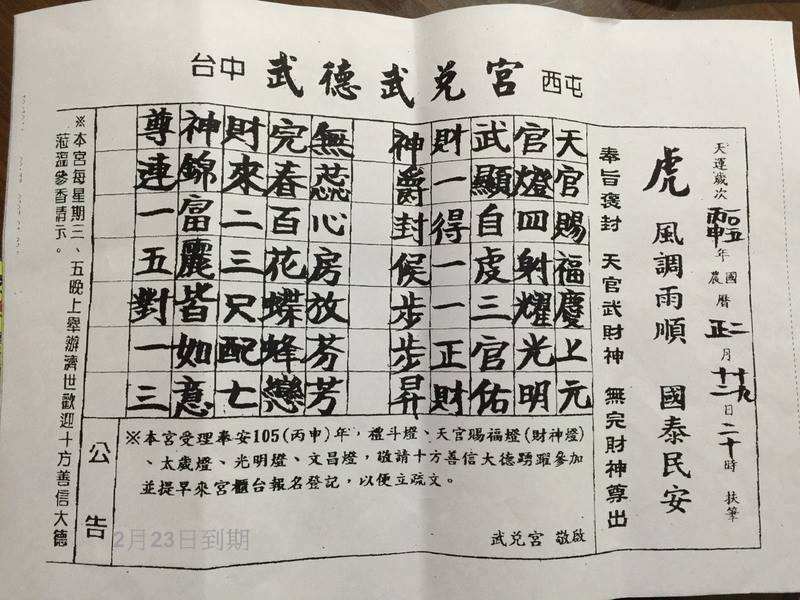 台中 武德武兌宮 西屯
天運歲次一〇五丙申年國農曆二正月十九十二日二十時 扶筆
虎 風調雨順 國泰民安
奉旨褒封 天官武財神 無完財神尊出
天官賜福慶上元
官燈四射耀光明
武顯自虔三官佑
財一得一一正財
神爵封候步步昇
無蕊心房放芬芳
完春百花蝶蜂戀
財來二三只配七
神錦富麗皆如意
尊連一五對一三
公告
※本宮受理奉安105(丙申)年，禮斗燈、天官賜福燈(財神燈)
、太歲燈、光明燈、文昌燈，敬請十方善信大德踴躍參加
並提早來宮櫃台報名登記，以便立疏文。
武兌宮 敬啟
※本宮每星期三、五晚上舉辦濟世歡迎十方善信大德
蒞臨參香請示。
2月23日到期